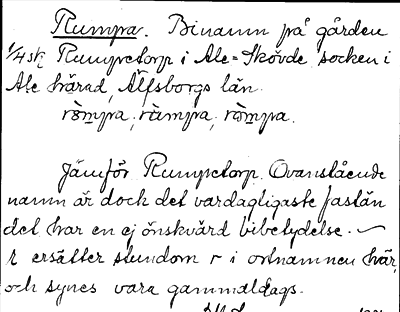 Rumpra. Binamn på gården
1/4 sk Rumpretorp i Ale-Skövde socken i
Ale härad, Älfsborgs län.
römpra, rämpra, römpra.
Jämför Rumpretorp. Ovanstående
namn är dock det vardagligaste fastän
det har en ej önskvärd bibetydelse. —
r ersätter stundom r i ortnamnen här,
och synes vara gammaldags.